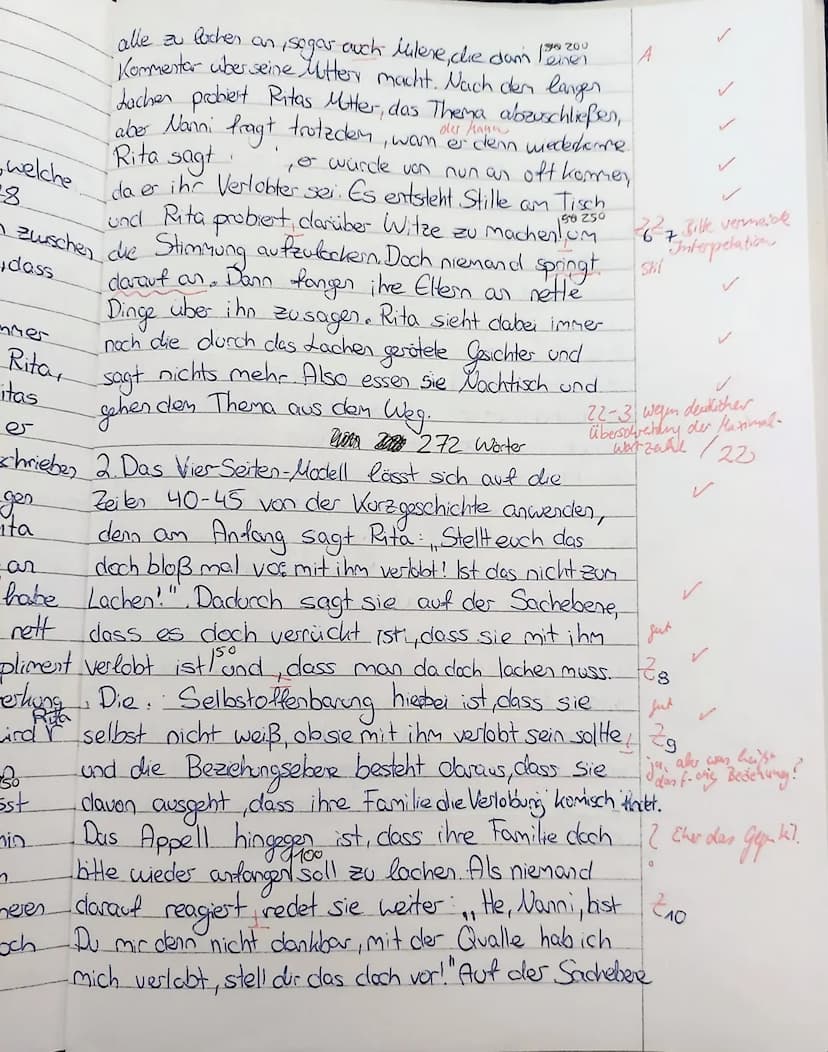 alle zu lachen an, sogar auch Milene, die dann | so 200 einen A ✓
Kommentar über seine Mutter macht. Nach dem langen ✓
Lachen probiert Ritas Mutter, das Thema abzuschließen, ✓
aber Nanni fragt trotzdem, wann er denn wiederkomme
Rita sagt , er würde von nun an oft kommen, ✓
da er ihr Verlobter sei. Es entsteht Stille am Tisch ✓
und Rita probiert, darüber Witze zu machen | so 250 um Z 6 Z 7 Bitte vermeide
die Stimmung aufzulockern. Doch niemand springt Interpretation Stil
darauf an. Dann fangen ihre Eltern an nette ✓
Dinge über ihn zu sagen. Rita sieht dabei immer
noch die durch das Lachen gerötete Gesichter und ✓
sagt nichts mehr. Also essen sie Nachtisch und ✓
gehen dem Thema aus dem Weg. 22-3 wegen deutlicher
Überschreitung der Maximal-
272 Wörter wortzahl /22
2. Das Vier-Seiten-Modell lässt sich auf die ✓
Zeilen 40-45 von der Kurzgeschichte anwenden,
denn am Anfang sagt Rita: „Stellt euch das
doch bloß mal vor: mit ihm verlobt! Ist das nicht zum
Lachen!". Dadurch sagt sie auf der Sachebene, ✓
dass es doch verrückt ist, dass sie mit ihm gut
verlobt ist | 50 und, dass man da doch lachen muss. Z 8 ✓
Die Selbstoffenbarung hierbei ist, dass sie gut
selbst nicht weiß, ob sie mit ihm verlobt sein sollte, Z 9 ✓
und die Beziehungsebene besteht daraus, dass sie ja, aber was heißt
das f. die Beziehung?
davon ausgeht, dass ihre Familie die Verlobung komisch findet.
Das Appell hingegen ist, dass ihre Familie doch ? Eher das
bitte wieder anfangen | 100 soll zu lachen. Als niemand
darauf reagiert, redet sie weiter: „He, Nanni, bist Z 10
Du mir denn nicht dankbar, mit der Qualle hab ich
mich verlobt, stell dir das doch vor!" Auf der Sachebene
welche
8
zwischen
, dass
Rita,
er
schrieben
gen
an
habe
nett
pliment
erkung
Rita
wird
50
och